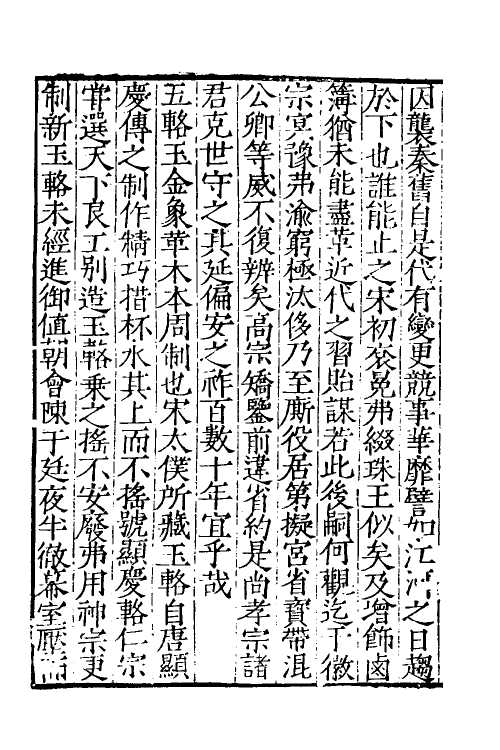 因襲秦舊自是代有變更競事華靡譬如江河之日趨
於下也誰能止之宋初衮冕弗綴珠玉似矣及增飾鹵
簿猶未能盡革近代之習貽謀若此後嗣何觀迄于徽
宗㝠豫弗渝窮極汰侈乃至廝役居第擬宮省寳帶混
公卿等威不復辨矣高宗矯鑒前違省約是尚孝宗諸
君克世守之其延偏安之祚百數十年宜乎哉
五輅玉金象革木本周制也宋太僕所藏玉輅自唐顯
慶傳之制作精巧措杯水其上而不搖號顯慶輅仁宗
甞選天下良工别造玉輅乗之搖不安廢弗用神宗更
制新玉輅未經進御值朝會陳于廷夜半徹幕室壓而